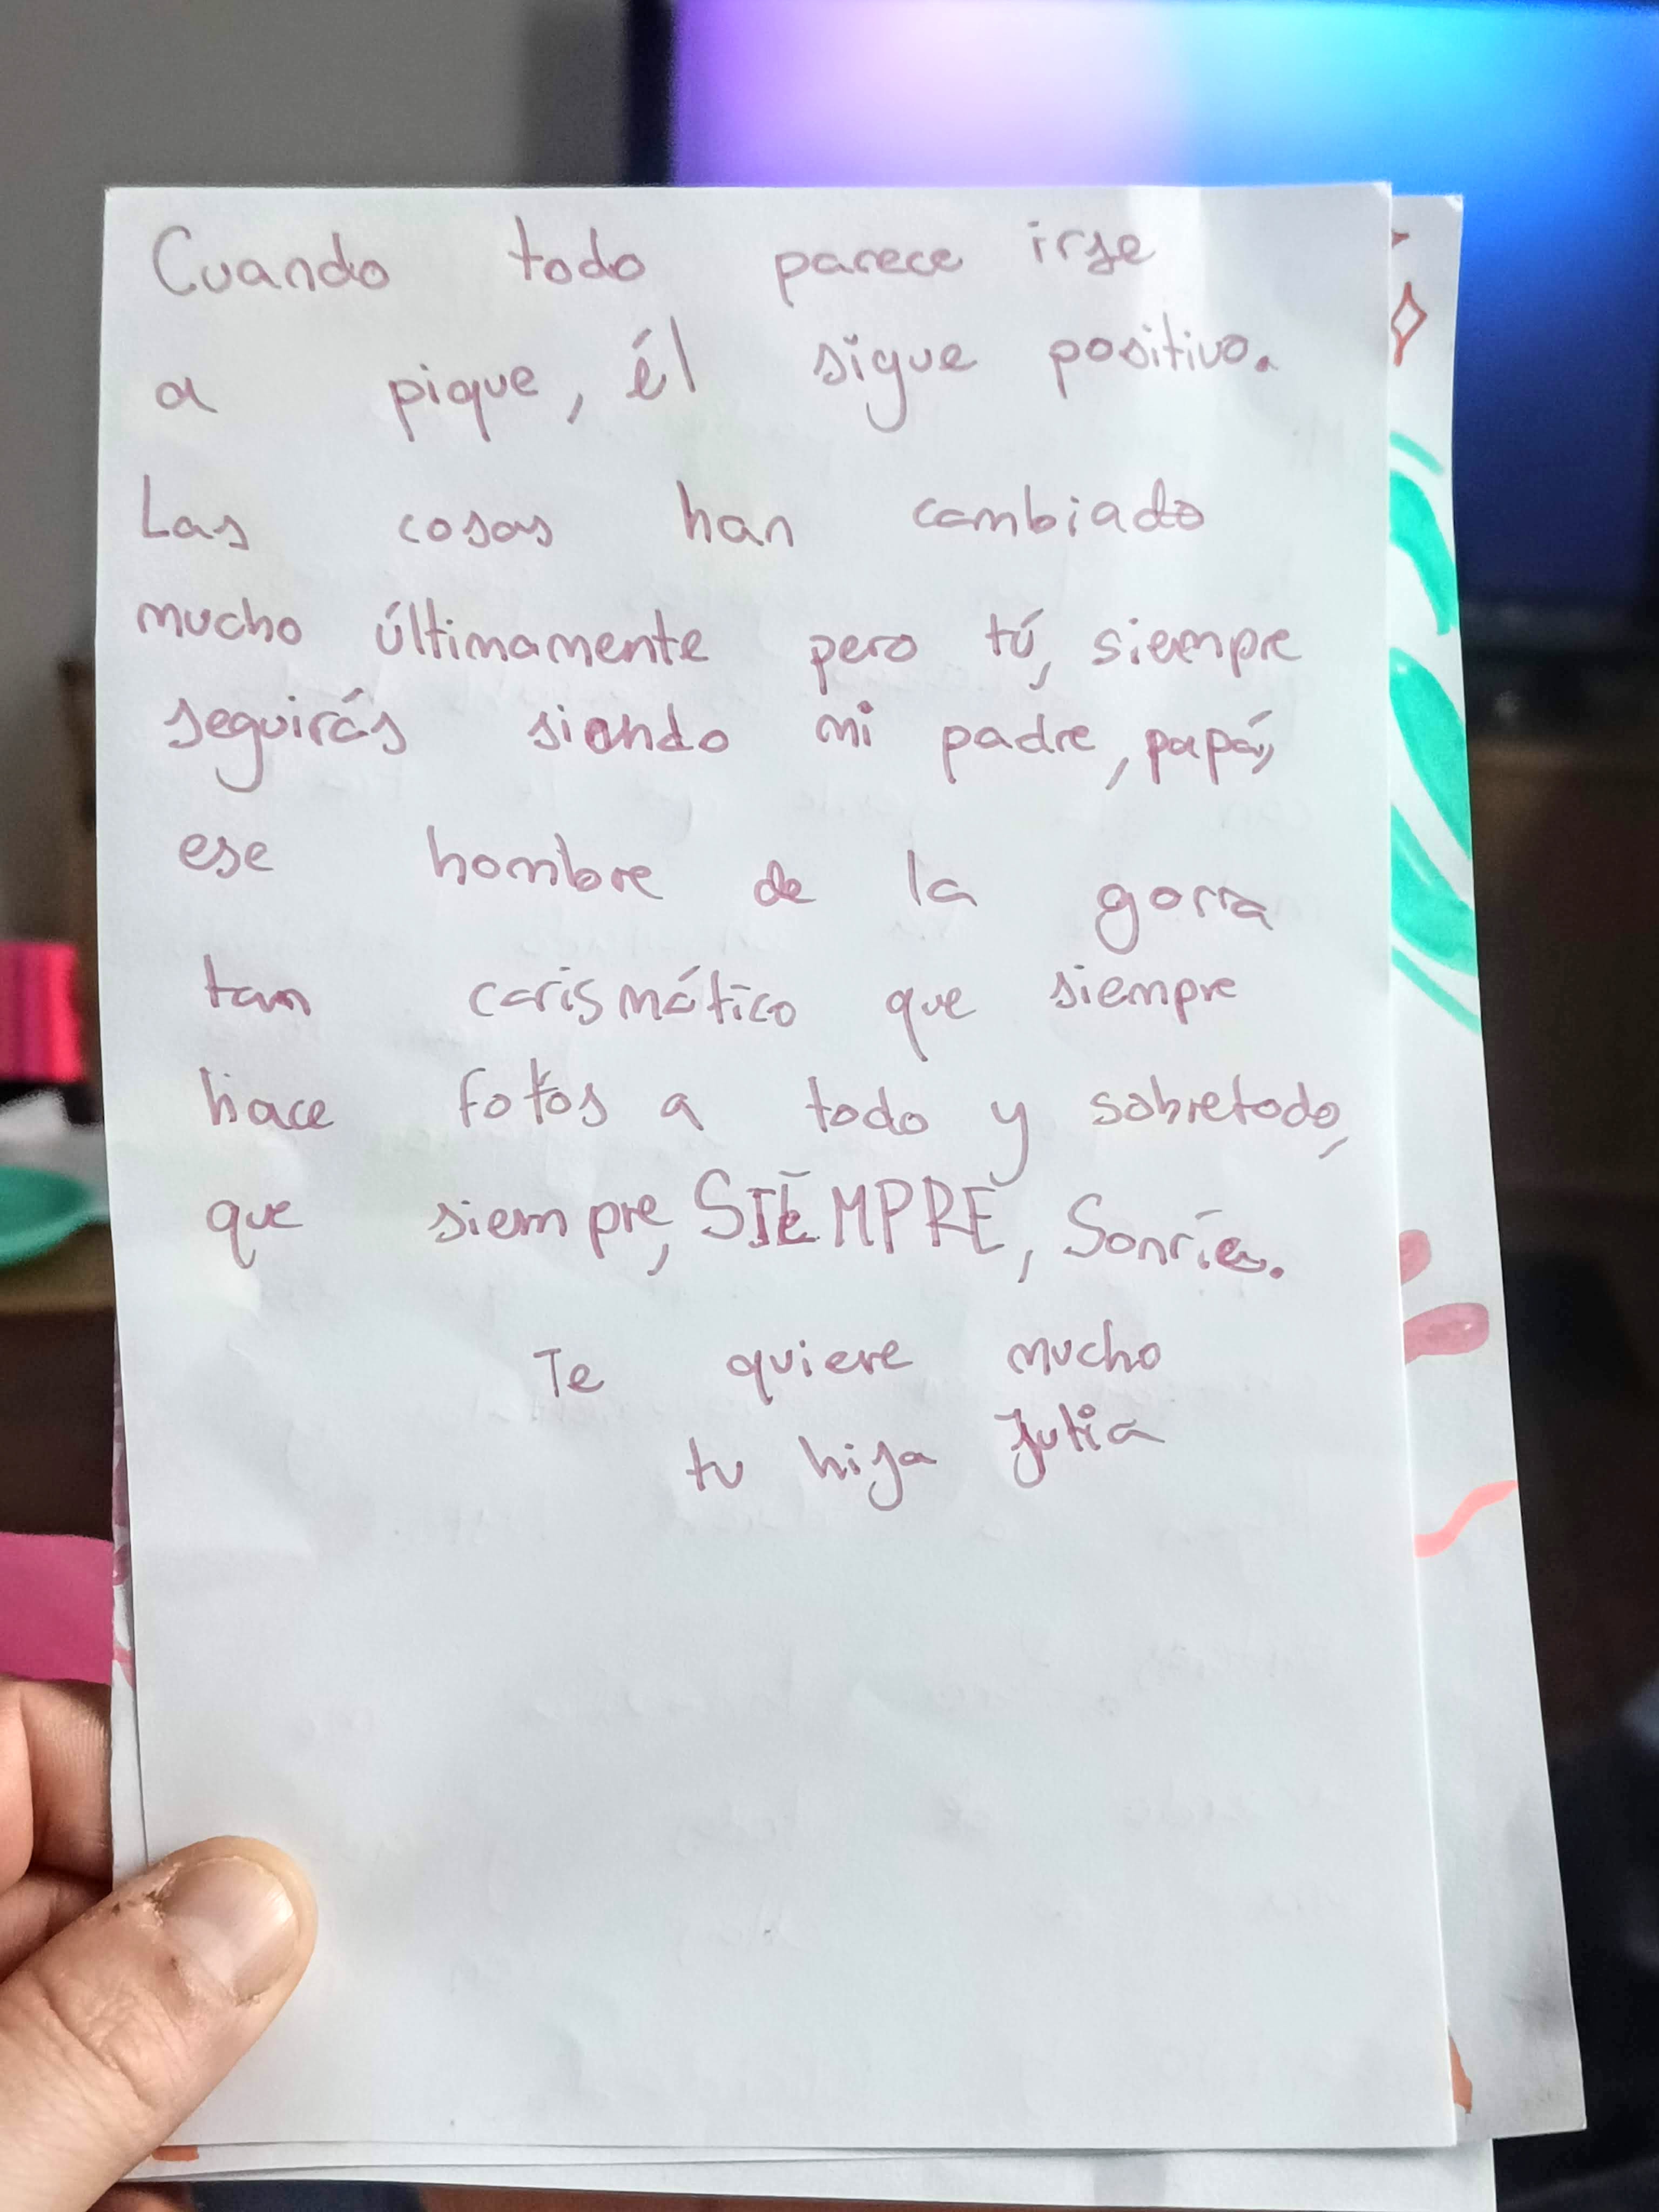 Cuando todo parece irse
a pique, él sigue positivo.
Las cosas han cambiado
mucho últimamente pero tú, siempre
seguirás siendo mi padre, papá,
ese hombre de la gorra
tan carismático que siempre
hace fotos a todo y sobretodo,
que siempre, SIEMPRE, Sonríe.
Te quiere mucho
tu hija Julia